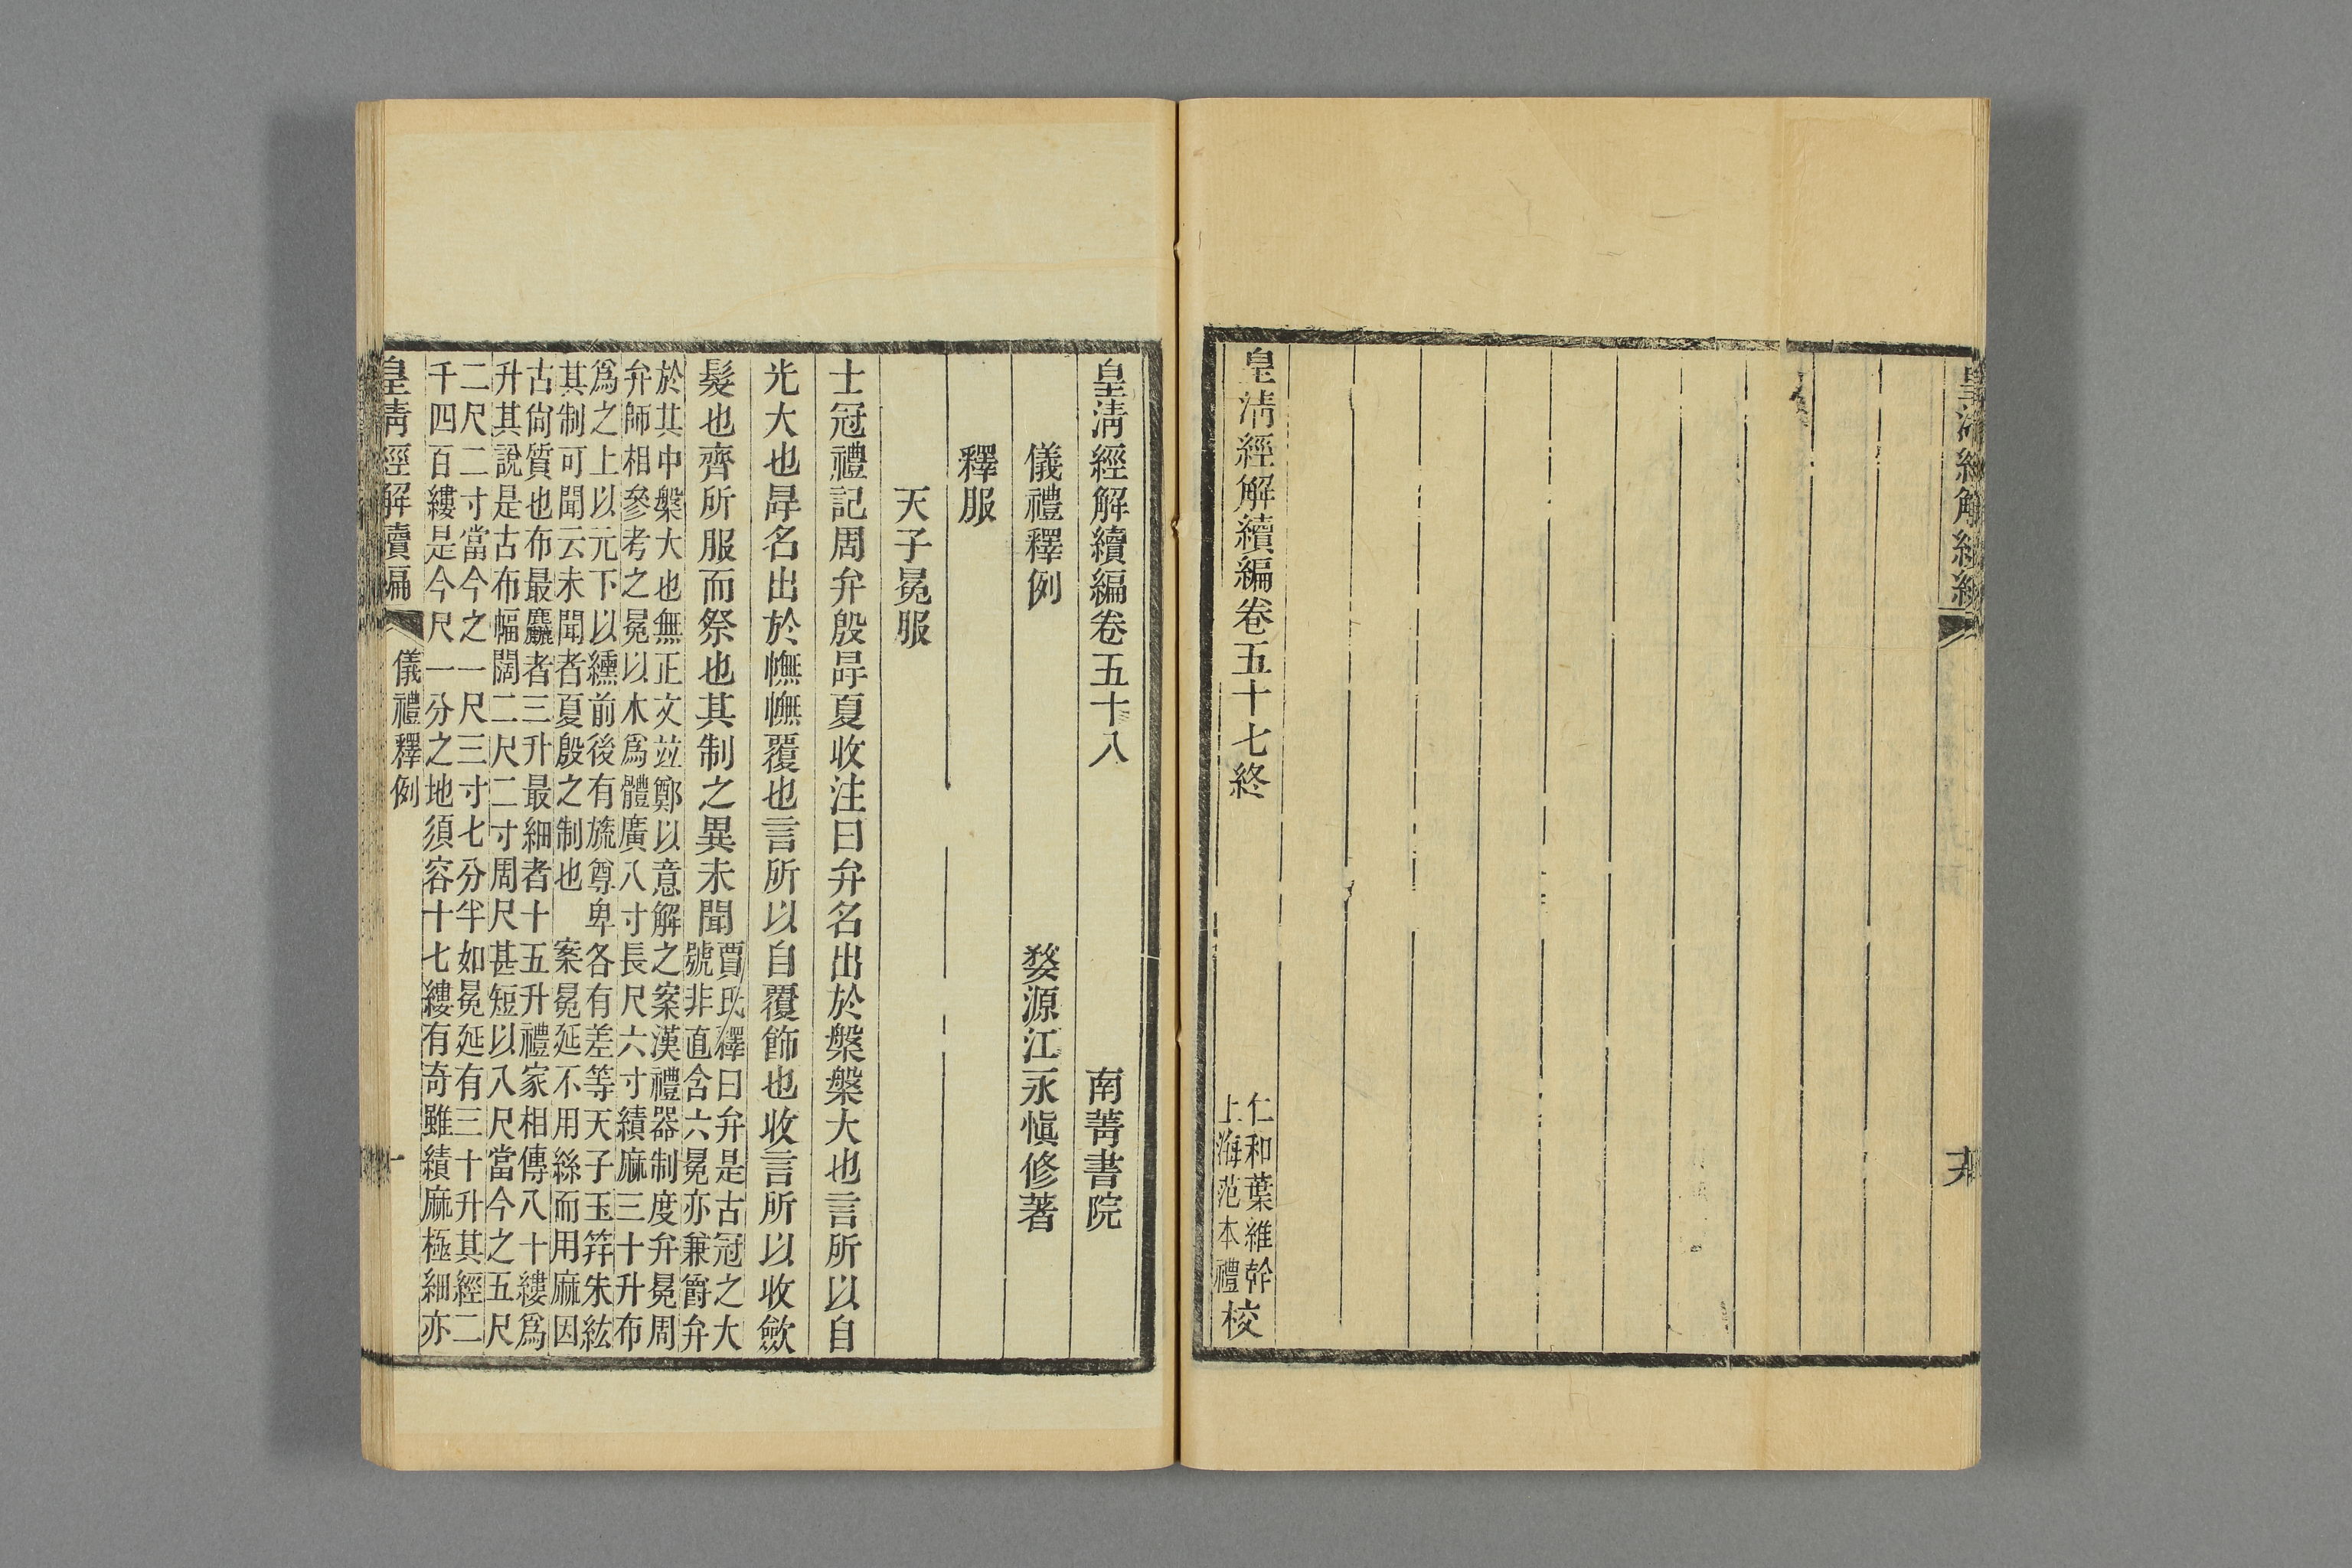 皇清經解續編
皇清經解續編卷五十七終
仁和葉維幹
上海范本禮
校
皇清經解續編卷五十八
南菁書院
儀禮釋例
婺源江永愼修著
釋服
天子冕服
士冠禮記周弁殷冔夏收注曰弁名出於槃槃大也言所以自
光大也冔名出於幠幠覆也言所以自覆飾也收言所以收斂
髮也齊所服而祭也其制之異未聞
賈氏釋曰弁是古冠之大
號非直含六冕亦兼爵弁
於其中槃大也無正文竝鄭以意解之案漢禮器制度弁冕周
弁師相參考之冕以木爲體廣八寸長尺六寸績麻三十升布
爲之上以元下以纁前後有旒尊卑各有差等天子玉筓朱紘
其制可聞云未聞者夏殷之制也　案冕延不用絲而用麻因
古尙質也布最麤者三升最細者十五升禮家相傳八十縷爲
升其說是古布幅闊二尺二寸周尺甚短以八尺當今之五尺
二尺二寸當今之一尺三寸七分半如冕延有三十升其經二
千四百縷是今尺一分之地須容十七縷有奇雖績麻極細亦
皇清經解續編
儀禮釋例
一